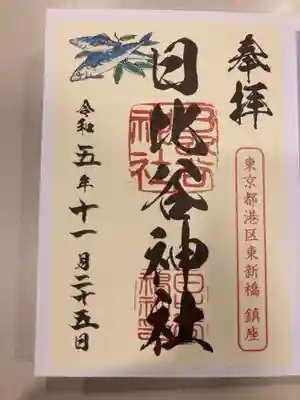 奉拝
東京都港区東新橋 鎮座
日比谷神社
令和五年十一月二十五日